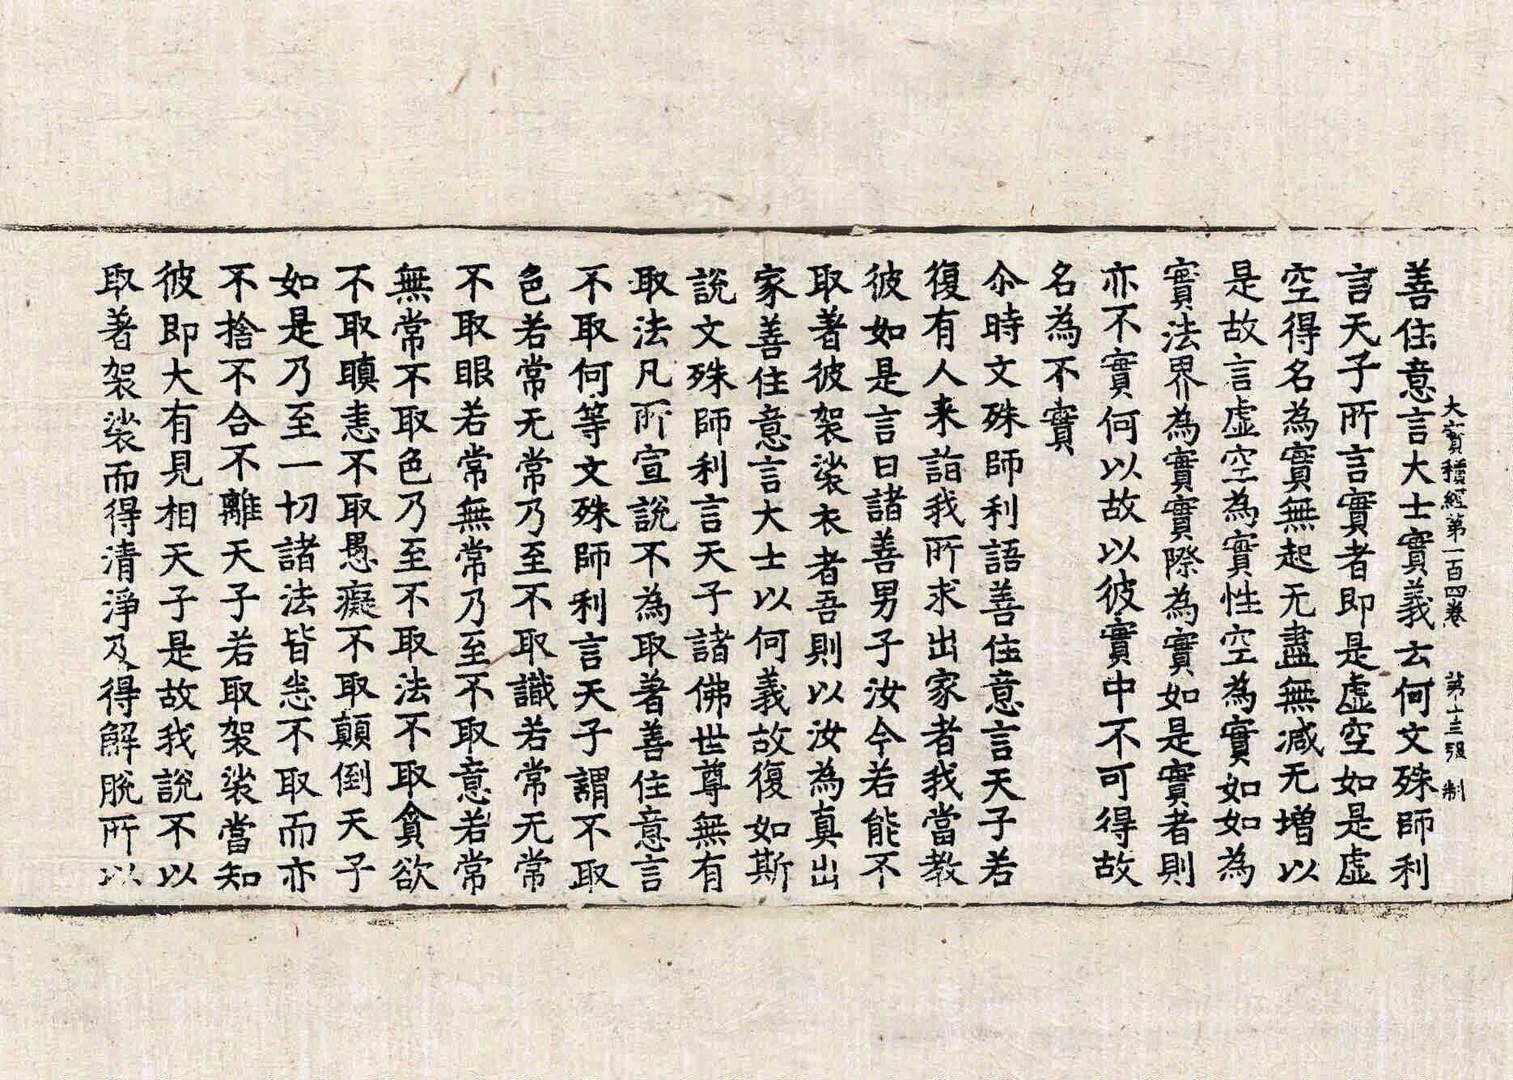 大寶積經第一百四卷 第十三張 制
善住意言大士實義云何文殊師利
言天子所言實者即是虛空如是虛
空得名為實無起无盡無减无增以
是故言虛空為實性空為實如如為
實法界為實實際為實如是實者則
亦不實何以故以彼實中不可得故
名為不實
尒時文殊師利語善住意言天子若
復有人来詣我所求出家者我當教
彼如是言曰諸善男子汝今若能不
取著彼袈裟衣者吾則以汝為真出
家善住意言大士以何義故復如斯
說文殊師利言天子諸佛世尊無有
取法凡所宣說不為取著善住意言
不取何等文殊師利言天子謂不取
色若常无常乃至不取識若常无常
不取眼若常無常乃至不取意若常
無常不取色乃至不取法不取貪欲
不取瞋恚不取愚癡不取顛倒天子
如是乃至一切諸法皆悉不取而亦
不捨不合不離天子若取袈裟當知
彼即大有見相天子是故我說不以
取著袈裟而得清淨及得解脫所以